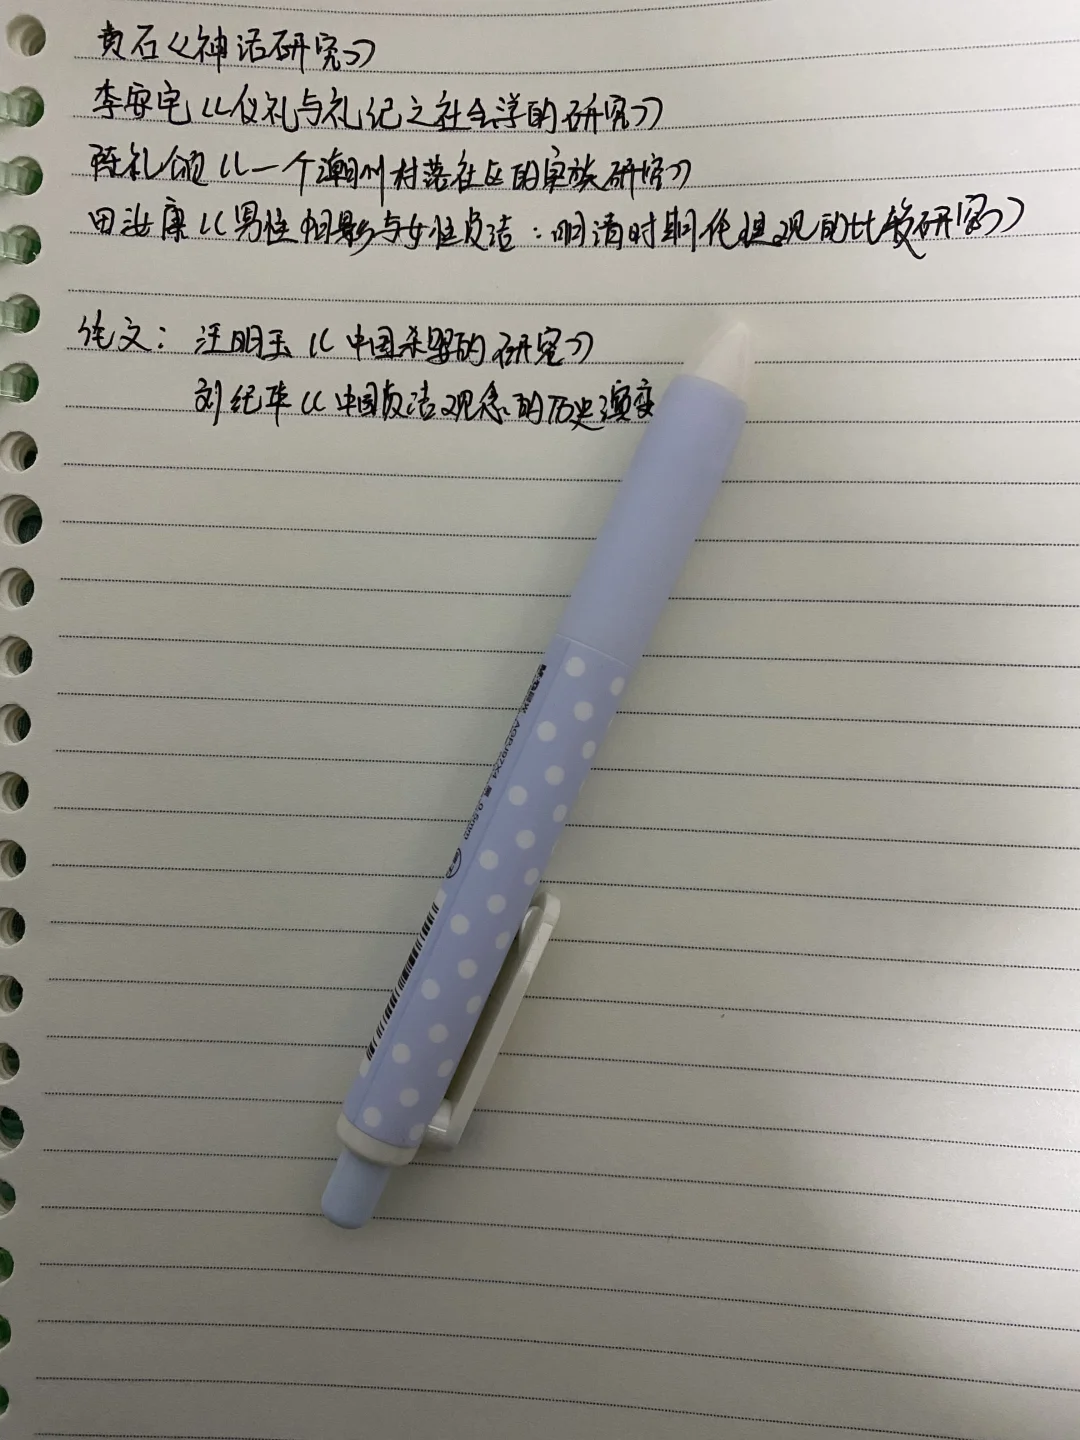 黄石《神话研究》
李安宅《仪礼与礼记之社会学的研究》
陈礼颂《一个潮州村落社区的宗族研究》
田汝康《男性阴影与女性贞洁：明清时期伦理观的比较研究》
论文：汪明玉《中国杀婴的研究》
刘纪华《中国贞洁观念的历史演变
M&G 0.5mm